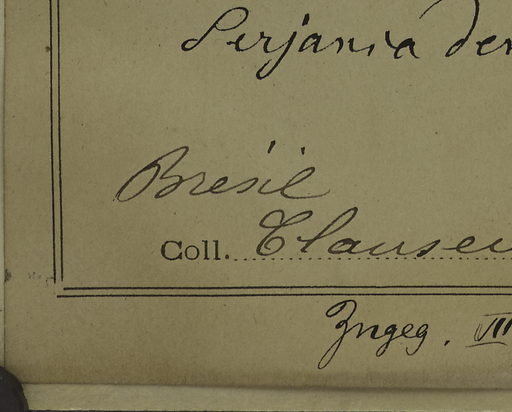 Serjania der
Brésil
Coll. Clausen
Ingeg. VII